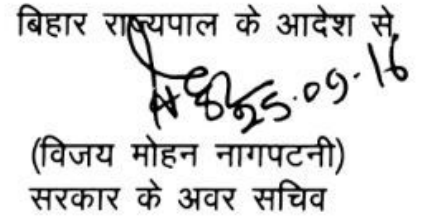 बिहार राज्यपाल के आदेश से,
25.09.16
(विजय मोहन नागपटनी)
सरकार के अवर सचिव